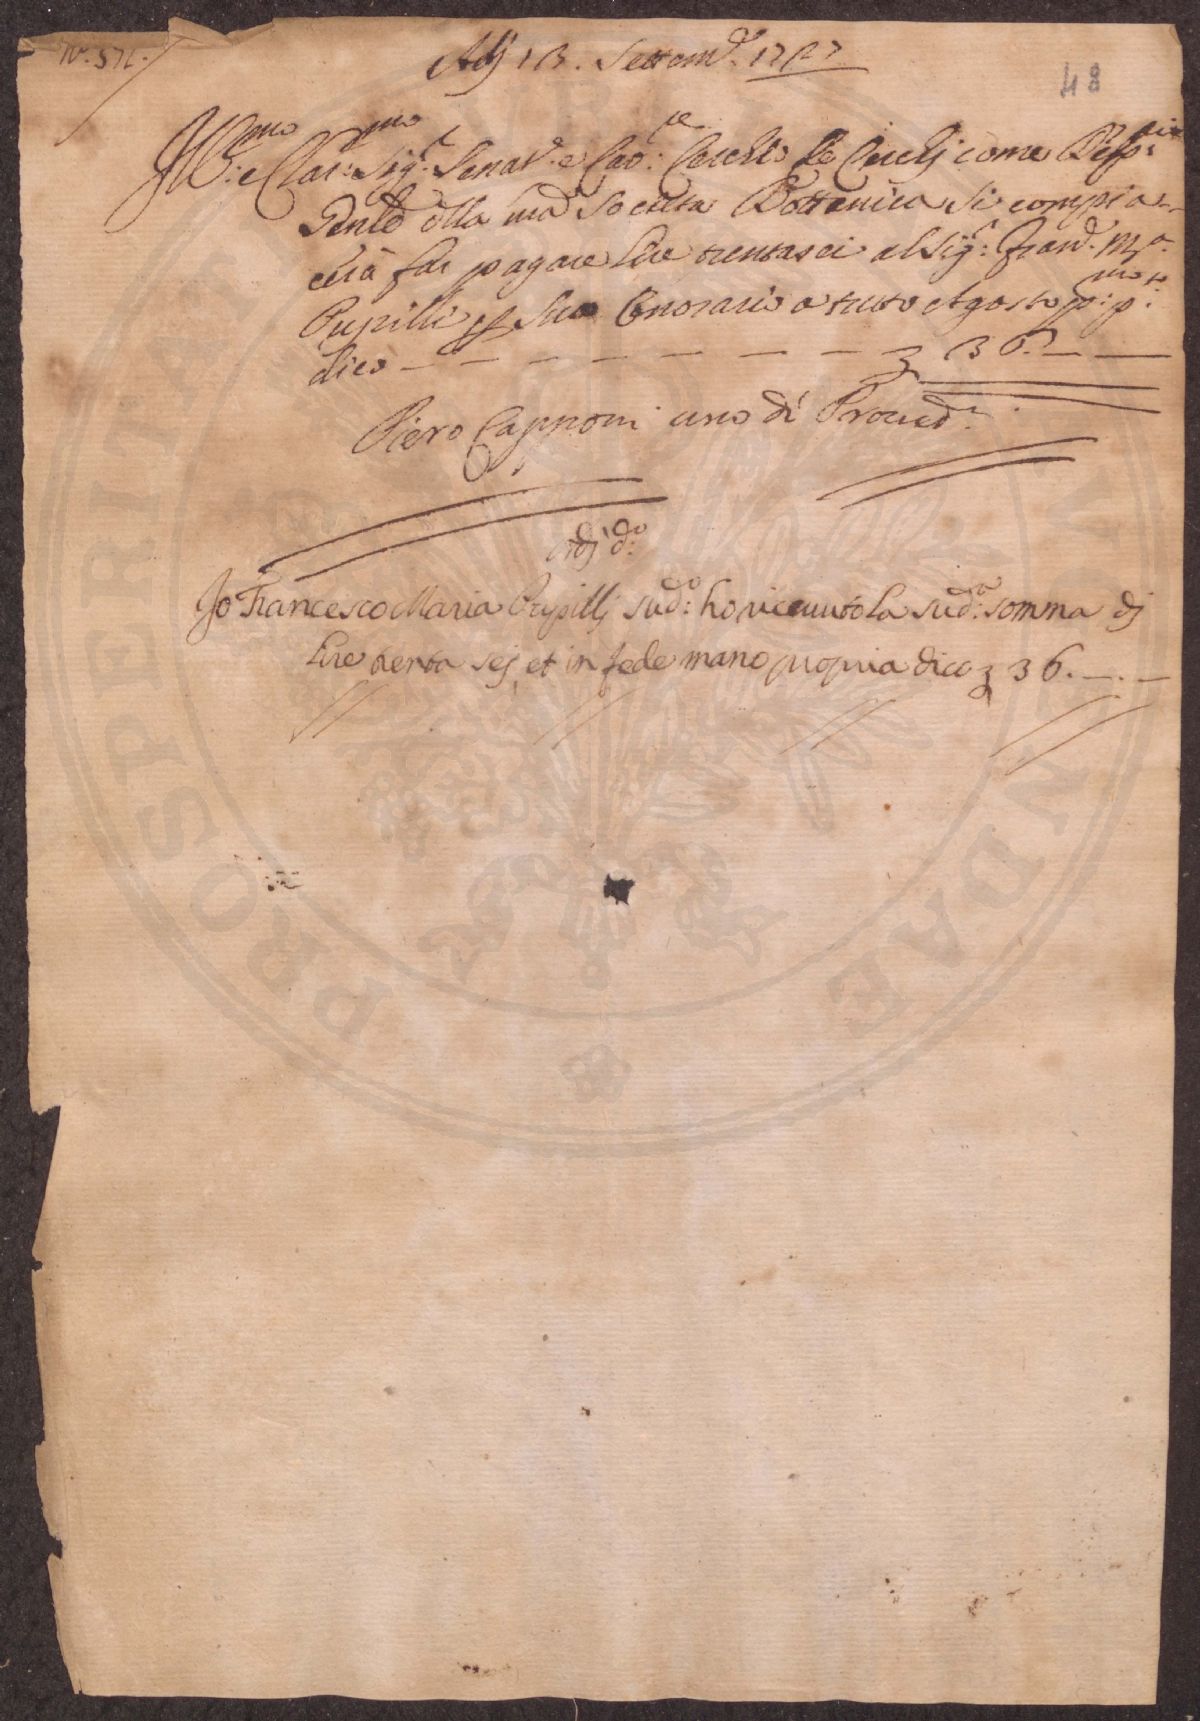 N.° 571.
Adj 13. Settemb.e 1727
48
Ill.mo e Clar.mo Sig.r Senat.e e Cav.re Cerchio de Cerchj come
dente della nra Società Bottanica si compia-
cerà far pagare lire trentasei al Sig.r Fran.co M.a
Pupilli p suo Onorario a tutto Agosto p.mo p.to
dico — — — — — — — £ 36. — —
Piero Capponi uno di Proved.ri
Adj d.o
Io Francesco Maria Pupillj sud.o ho ricevuto la sud.a somma dj
lire trenta sej et in fede mano propria dico £ 36. —. —
PROSPERITATI